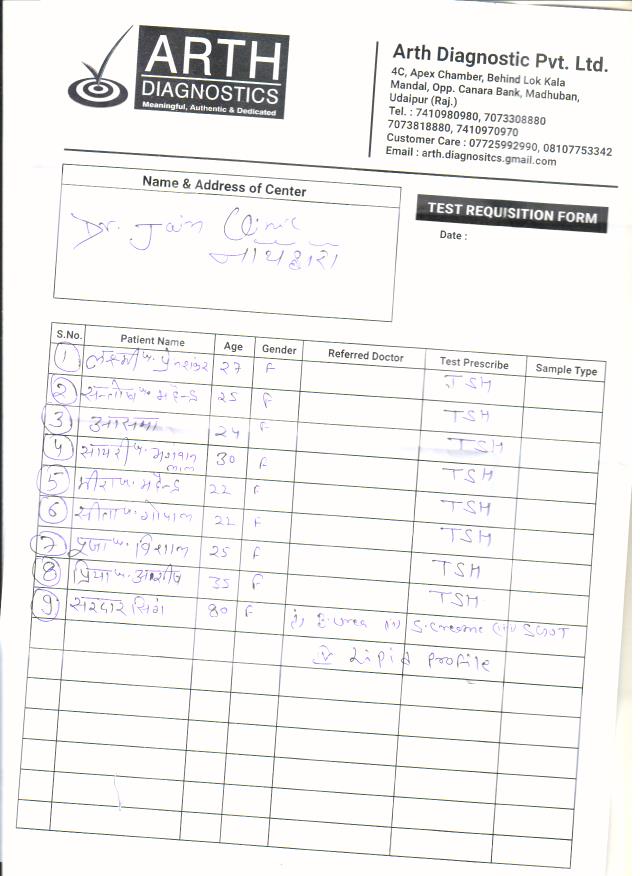 ARTH
DIAGNOSTICS
Meaningful, Authentic & Dedicated
Arth Diagnostic Pvt. Ltd.
4C, Apex Chamber, Behind Lok Kala
Mandal, Opp. Canara Bank, Madhuban,
Udaipur (Raj.)
Tel. : 7410980980, 7073308880
7073818880, 7410970970
Customer Care : 07725992990, 08107753342
Email : arth.diagnositcs.gmail.com
Name & Address of Center
TEST REQUISITION FORM
Date :
Dr. Jain Clinic
S.No. Patient Name Age Gender Referred Doctor Test Prescribe Sample Type
1 लक्ष्मी W. प्रेमशंकर 27 F TSH
2 सन्तोष W. महेन्द्र 25 F TSH
3 आसमा 24 F TSH
4 सायरी W. भगवान लाल 30 F TSH
5 मीरा W. महेन्द्र 22 F TSH
6 सीता W. गोपाल 22 F TSH
7 पूजा W. विशाल 25 F TSH
8 प्रिया W. आशीष 35 F TSH
9 सरदार सिंग 80 F urea SGOT
Lipid Profile